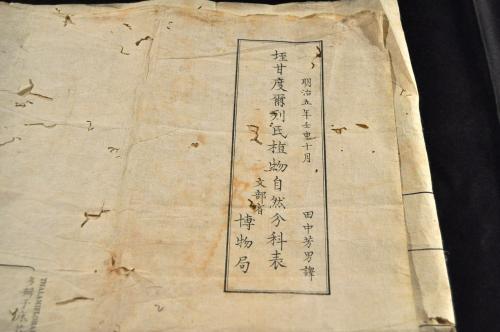 明治五年壬申十月 田中芳男譯
垤甘度爾列氏植物自然分科表
文部省
博物局